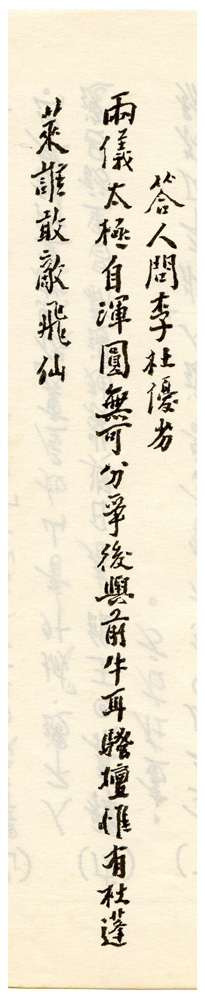 答人問李杜優劣
兩儀太極自渾圓無可分爭後與前牛耳騷壇惟有杜蓬
萊誰敢敵飛仙